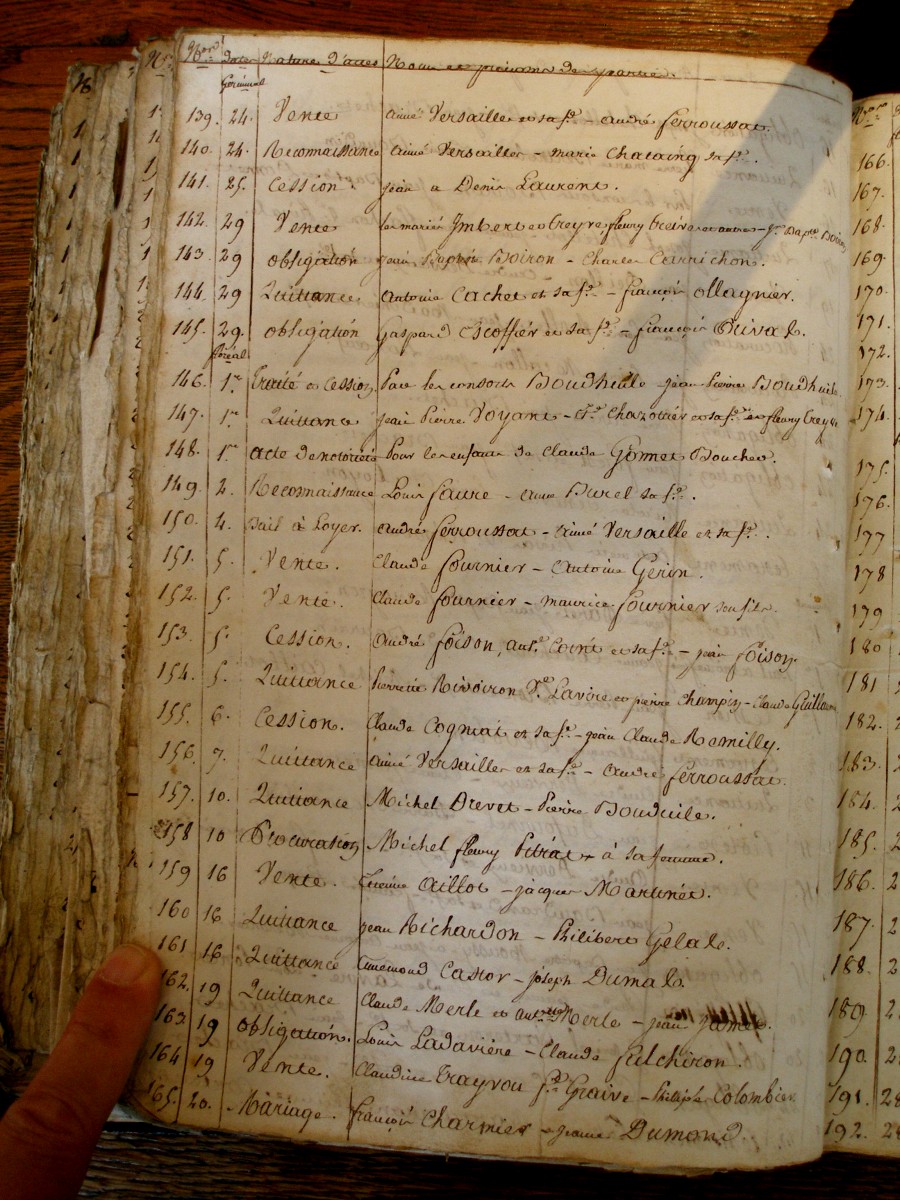 Nos. Dates Nature d'actes Noms et prénoms des parties.
Germinal
139. 24. Vente aimé Versaille et sa fe. - andré ferroussat.
140. 24. Reconnaissance aimé Versailles - marie Chataing sa fe.
141. 25. Cession. jean a Denis Laurent.
142. 29 Vente les mariés Imbert et treyve fleury treive et autres - Jn. Bapte. Boiron
143. 29 obligation jean Baptiste Boiron - Charles Carrichon.
144. 29 Quittance Antoine Cachet et sa fe. - françois ollagnier.
145. 29. obligation Gaspard Escoffier et sa fe. - françois Rival.
floréal
146. 1er Traité et Cession Pace les consorts Boudheile - jean Pierre Boudheile.
147. 1er Quittance jean Pierre Voyant - Chazottier et sa fe. et fleury treyve
148. 1er acte de notoriété Pour les enfants de Claude Gomet Boucher.
149. 2. Reconnaissance Louis faure - anne Burel sa fe.
150. 4. Bail à Loyer. andré ferroussat - aimé Versaille et sa fe.
151. 5. Vente. Claude fournier - antoine Gerin.
152. 5. Vente. Claude fournier - maurice fournier son fils.
153. 5. Cession. andré foison, ant. Coint et sa fe. - jean foison.
154. 5. Quittance Pierrette Rivoiron Ve. Lavire et pierre Champin - Claude Guillaume
155. 6. Cession. Claude Cogniat et sa fe. - jean Claude Remilly.
156. 7. Quittance aimé Versailles et sa fe. - andré ferroussat.
157. 10. Quittance Michel Drevet - Pierre Bouduile.
158 10 Procuration Michel fleury Pitrat à sa femme.
159 16 Vente. Etienne aillot - jacques Martinet.
160 16 Quittance jean Richardon - Philibert Gelas.
161 16. Quittance annemond Castor - joseph Dumas.
162. 19 Quittance Claude Merle et antte. Merle - jean
163 19 obligation. Louis Ladavière - Claude fulchiron.
164 19 Vente. Claudine Trayvou fe. Graive - Philippe Colombier
165. 20. Mariage. françois Charmier - jeanne Dumond.
166.
167.
168.
169.
170.
171.
172.
173.
174.
175.
176.
177
178
179
180
181
182. 2
183. 2
184. 2
185. 2
186. 2
187. 2
188. 2
189. 2
190. 2
191. 28
192. 28